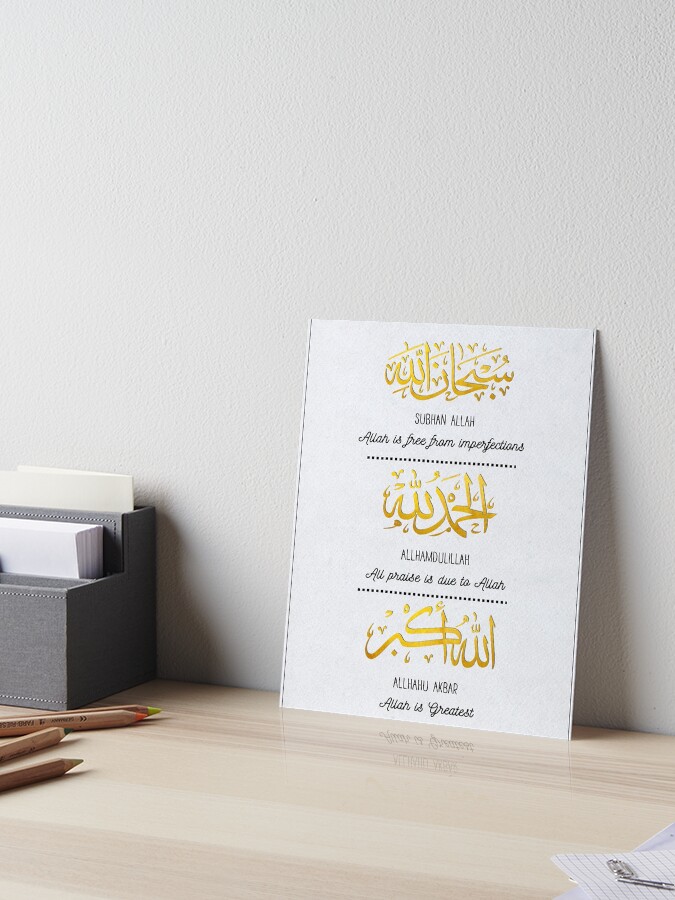 سُبْحَانَ اللَّه
SUBHAN ALLAH
Allah is free from imperfections
الْحَمْدُ لِلَّه
ALLHAMDULILLAH
All praise is due to Allah
اللهُ أَكْبَر
ALLHAHU AKBAR
Allah is Greatest